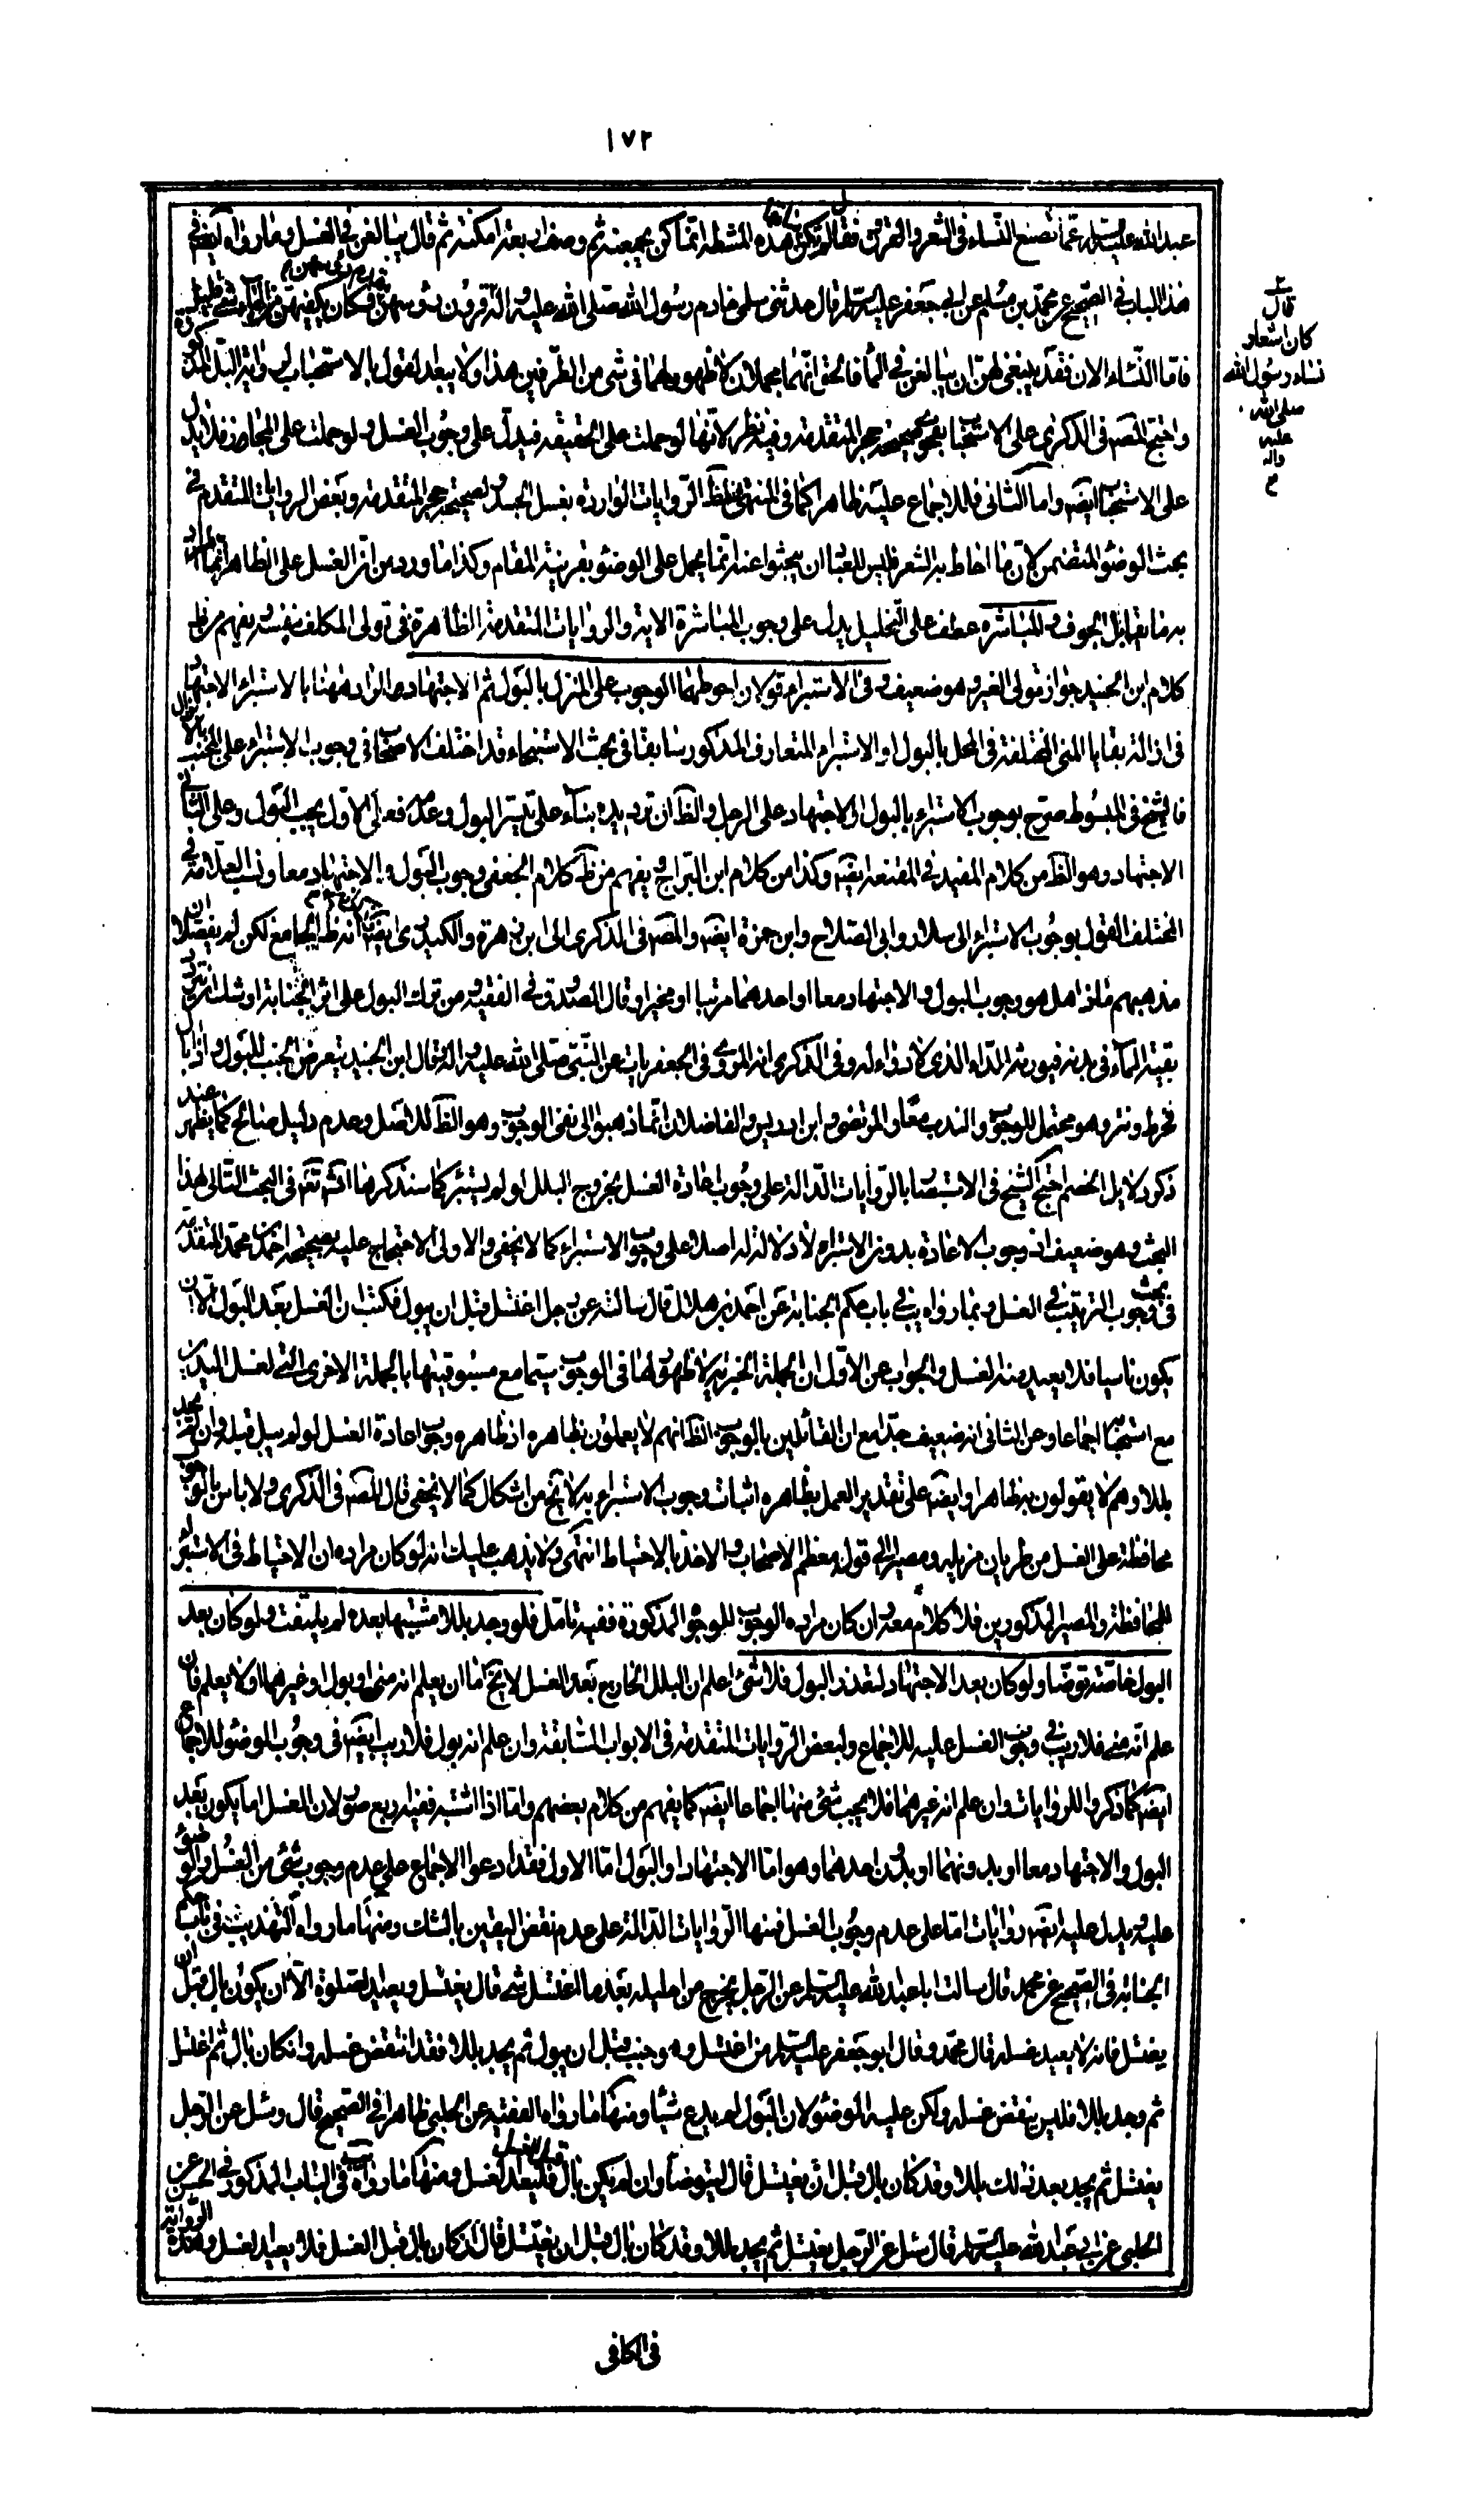 ١٧٢
عبد الله عليه السلام عما تصنع النساء في الشعر والقرون فقال لم تكن هذه المشطة انما كن يجمعنه ثم وصف اربعة امكنة ثم قال يبالغن في الغسل وما رواه ايضا في
هذا الباب في الصحيح عن محمد بن مسلم عن ابي جعفر عليه السلام قال حدثتني سلمى خادم رسول الله صلى الله عليه واله قرون رؤسهن فكان يكفيهن من الماء شئ قليل
قال
كان اشعار
نساء رسول الله
صلى الله
عليه
واله
م
فاما النساء الان فقد ينبغي لهن ان يبالغن في الماء فالحق انهما مجملان لا ظهور لهما في شئ من الطرفين هذا ولا يبعد القول بالاستحباب لرواية البلل المذكورة
واحتج المصه في الذكرى على الاستحباب بفحوى صحيحة حجر المتقدمة وفيه نظر لانها لو حملت على الحقيقة فيدل على وجوب الغسل ولو حملت على المجاز فلا يدل
على الاستحباب ايضه واما الثاني فللاجماع عليه ظاهرا كما في المنتهى ولظ الروايات الواردة بغسل الجسد ولصحيحة حجر المتقدمة وبعض الروايات المتقدم في
بحث الوضوء المتضمن لان ما احاط به الشعر فليس للعباد ان يبحثوا عنه انما يحمل على الوضوء بقرينة المقام وكذا ما ورد من ان الغسل على الظاهر انما المراد
به ما يقابل الجوف والمباشرة عطف على التخليل يدل على وجوب المباشرة الاية والروايات المتقدمة الظاهرة في تولى المكلف بنفسه ويفهم من ظ
كلام ابن الجنيد جواز تولى الغير وهو ضعيف وفي الاستبراء قولان احوطهما الوجوب على المنزل بالبول ثم الاجتهاد والمراد ههنا بالاستبراء الاجتهاد
في ازالة بقايا المنى المختلفة في المحل بالبول او الاستبراء المتعارف المذكور سابقا في بحث الاستنجاء وقد اختلف الاصحاب في وجوب الاستبراء على الجنب بالانزال
فالشيخ في المبسوط صرح بوجوب الاستبراء بالبول او الاجتهاد على الرجل والظ ان ترديده بناء على تيسر البول وعدمه فعلى الاول يجب البول وعلى الثاني
الاجتهاد وهو الظ من كلام المفيد في المقنعة ايضه وكذا من كلام ابن البراج ويفهم من ظ كلام الجعفي وجوب البول والاجتهاد معا ونسب العلامة في
المختلف القول بوجوب الاستبراء الى سلار وابي الصلاح وابن حمزة ايضه والمصه في الذكرى الى ابن زهرة والكيدري ايضه وانه ظ الجامع لكن لم يفصلا ان
مذهبهم ماذا هل هو وجوب البول والاجتهاد معا او احدهما مرتبا او مخيرا وقال الصدوق في الفقيه من ترك البول على اثر الجنابة اوشك ان يتردد
بقية الماء في بدنه فيورثه الداء الذي لا دواء له وفي الذكرى انه المروى في الجعفريات عن النبي صلى الله عليه واله وقال ابن الجنيد يتعرض الجنب للبول واذا بال
نخرط ونتر وهو محتمل للوجوب والندب معا والمرتضى وابن ادريس والفاضلان انما ذهبوا الى نفى الوجوب وهو الظ للاصل وعدم دليل صالح كما يظهر عند
ذكر دلايل الخصم احتج الشيخ في الاستبصار بالروايات الدالة على وجوب اعادة الغسل بخروج البلل لو لم يستبرء كما سنذكرها انشه تعه في البحث التالي لهذا
البحث وهو ضعيف اذ وجوب الاعادة بدون الاستبراء لا دلالة له اصلا على وجوب الاستبراء كما لا يخفى والاولى الاحتجاج عليه بصحيحة احمد بن محمد المتقدمة
في بحث وجوب الترتيب في الغسل وبما رواه يب في باب حكم الجنابة عن احمد بن هلال قال سالته عن رجل اغتسل قبل ان يبول فكتب ان الغسل بعد البول الا ان
يكون ناسيا فلا يعيد منه الغسل والجواب عن الاول ان الجملة الخبرية لا ظهور لها في الوجوب سيما مع مسبوقيتها بالجملة الاخرى التي لغسل اليدين
مع استحبابه اجماعا وعن الثاني انه ضعيف جدا مع ان القائلين بالوجوب الظ انهم لا يعملون بظاهره اذ ظاهره وجوب اعادة الغسل لو لم يبل قبله وان لم يجد
بللا وهم لا يقولون به ظاهرا وايضه على تقدير العمل بظاهره اثبات وجوب الاستبراء به لا يخ من اشكال كما لا يخفى قال المصه في الذكرى ولا باس بالوجوب
محافظة على الغسل من طريان مزيله ومصيرا الى قول معظم الاصحاب والاخذ بالاحتياط انتهى ولا يذهب عليك انه لو كان مراده ان الاحتياط في الاستبراء
للمحافظة والمصير المذكورين فلا كلام معه وان كان مراده الوجوب للوجوه المذكورة ففيه تامل فلو وجد بللا مشتبها بعده لم يلتفت ولو كان بعد
البول خاصة توضا ولو كان بعد الاجتهاد لتعذر البول فلا شئ اعلم ان البلل الخارج بعد الغسل لا يخ اما ان يعلم انه منى او بول او غيرهما او لا يعلم فان
علم انه منى فلا ريب في وجوب الغسل عليه للاجماع ولبعض الروايات المتقدمة في الابواب السابقة وان علم انه بول فلا ريب ايضه في وجوب الوضوء للاجماع
ايضه كما ذكر وللروايات وان علم انه غيرهما فلا يجب شئ منها اجماعا ايضه كما يفهم من كلام بعضهم واما اذا اشتبه ففيه اربع صور لان الغسل اما يكون بعد
البول والاجتهاد معا او بدونهما او بدون احدهما وهو اما الاجتهاد او البول اما الاول فقد ادعوا الاجماع على عدم وجوب شئ من الغسل والوضوء
عليه ويدل عليه ايضه روايات اما على عدم وجوب الغسل فمنها الروايات الدالة على عدم نقض اليقين بالشك ومنها ما رواه التهذيب في باب حكم
الجنابة في الصحيح عن محمد قال سالت ابا عبد الله عليه السلام عن الرجل يخرج من احليله بعد ما اغتسل شئ قال يغتسل ويعيد الصلوة الا ان يكون بال قبل ان
يغتسل فانه لا يعيد غسله قال محمد وقال ابو جعفر عليه السلام من اغتسل وهو جنب قبل ان يبول ثم يجد بللا فقد انتقض غسله وان كان بال ثم اغتسل
ثم وجد بللا فليس ينقض غسله ولكن عليه الوضوء لان البول لم يدع شيئا ومنها ما رواه الفقيه عن الحلبي ظاهرا في الصحيح قال وسئل عن الرجل
يغتسل ثم يجد بعد ذلك بللا وقد كان بال قبل ان يغتسل قال ليتوضا وان لم يكن بال قبل الغسل فليعد الغسل ومنها ما رواه يب في الباب المذكور في الحسن عن
الحلبي عن ابي عبد الله عليه السلام قال سئل عن الرجل يغتسل ثم يجد بللا وقد كان بال قبل ان يغتسل قال ان كان بال قبل الغسل فلا يعيد الغسل وهذه الرواية
في الكافي